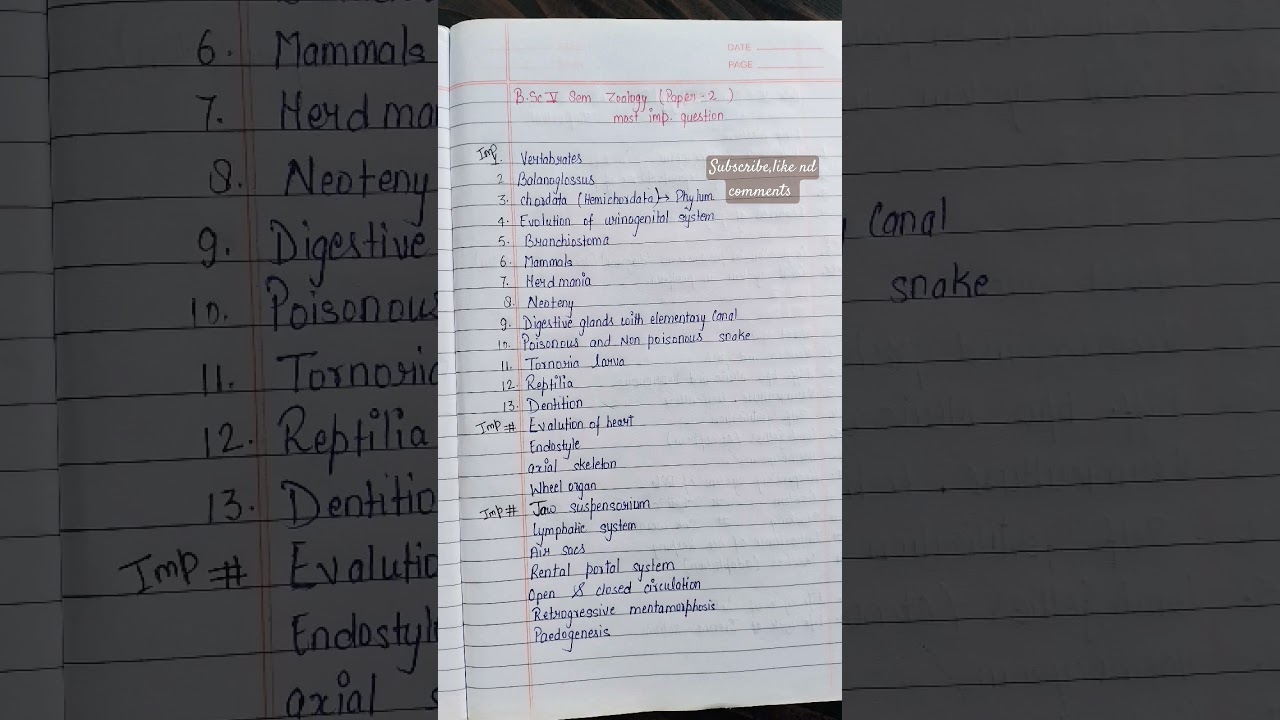 DATE
PAGE
B.Sc V Sem Zoology (Paper-2)
most imp. question
Imp.
Subscribe,like nd
comments
1. Vertabrates
2 Balanoglossus
3. chordata (Hemichordata)→ Phylum
4. Evolution of urinogenital system
5. Branchiostoma
6. Mammals
7. Herdmania
8. Neoteny
9. Digestive glands with elementary Canal
10. Poisonous and Non poisonous snake
11. Tornoria larva
12. Reptilia
13. Dentition
Imp # Evalution of heart
Endostyle
axial skeleton
Wheel organ
Imp # Jaw suspensorium
Lymphatic system
Air sacs
Rental portal system
Open & closed circulation
Retrogressive mentamorphosis
Paedogenesis
6. Mammals
7. Herdma
8. Neoteny
9. Digestive
10. Poisonous
11. Tornori
12. Reptilia
13. Dentitio
Imp # Evalutio
Endostyl
axial s
Canal
snake